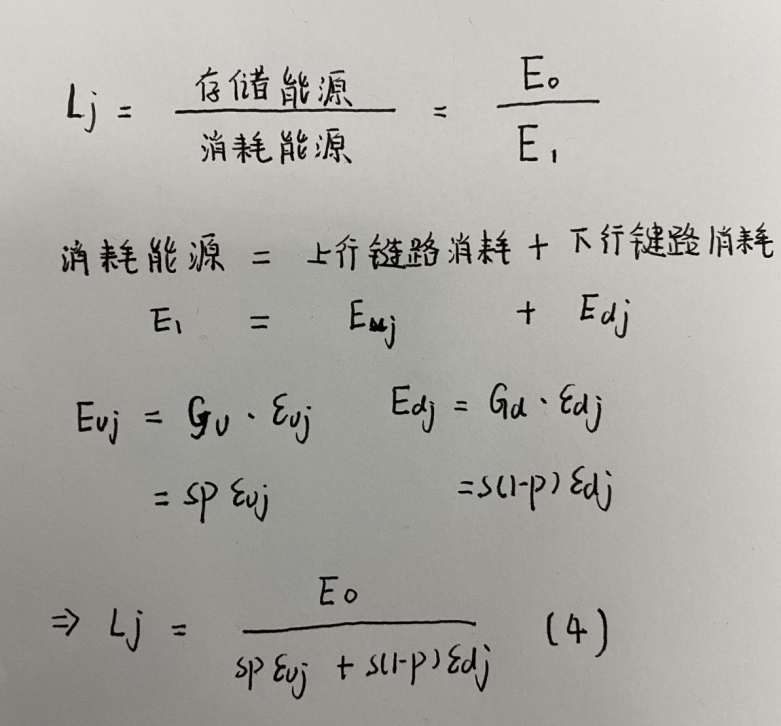 Lj = 存储能源 / 消耗能源 = E₀ / E₁
消耗能源 = 上行链路消耗 + 下行键路消耗
E₁ = Euj + Edj
Euj = Gu · εuj Edj = Gd · εdj
= sp εuj = s(1-p) εdj
⇒ Lj = E₀ / (sp εuj + s(1-p) εdj) (4)